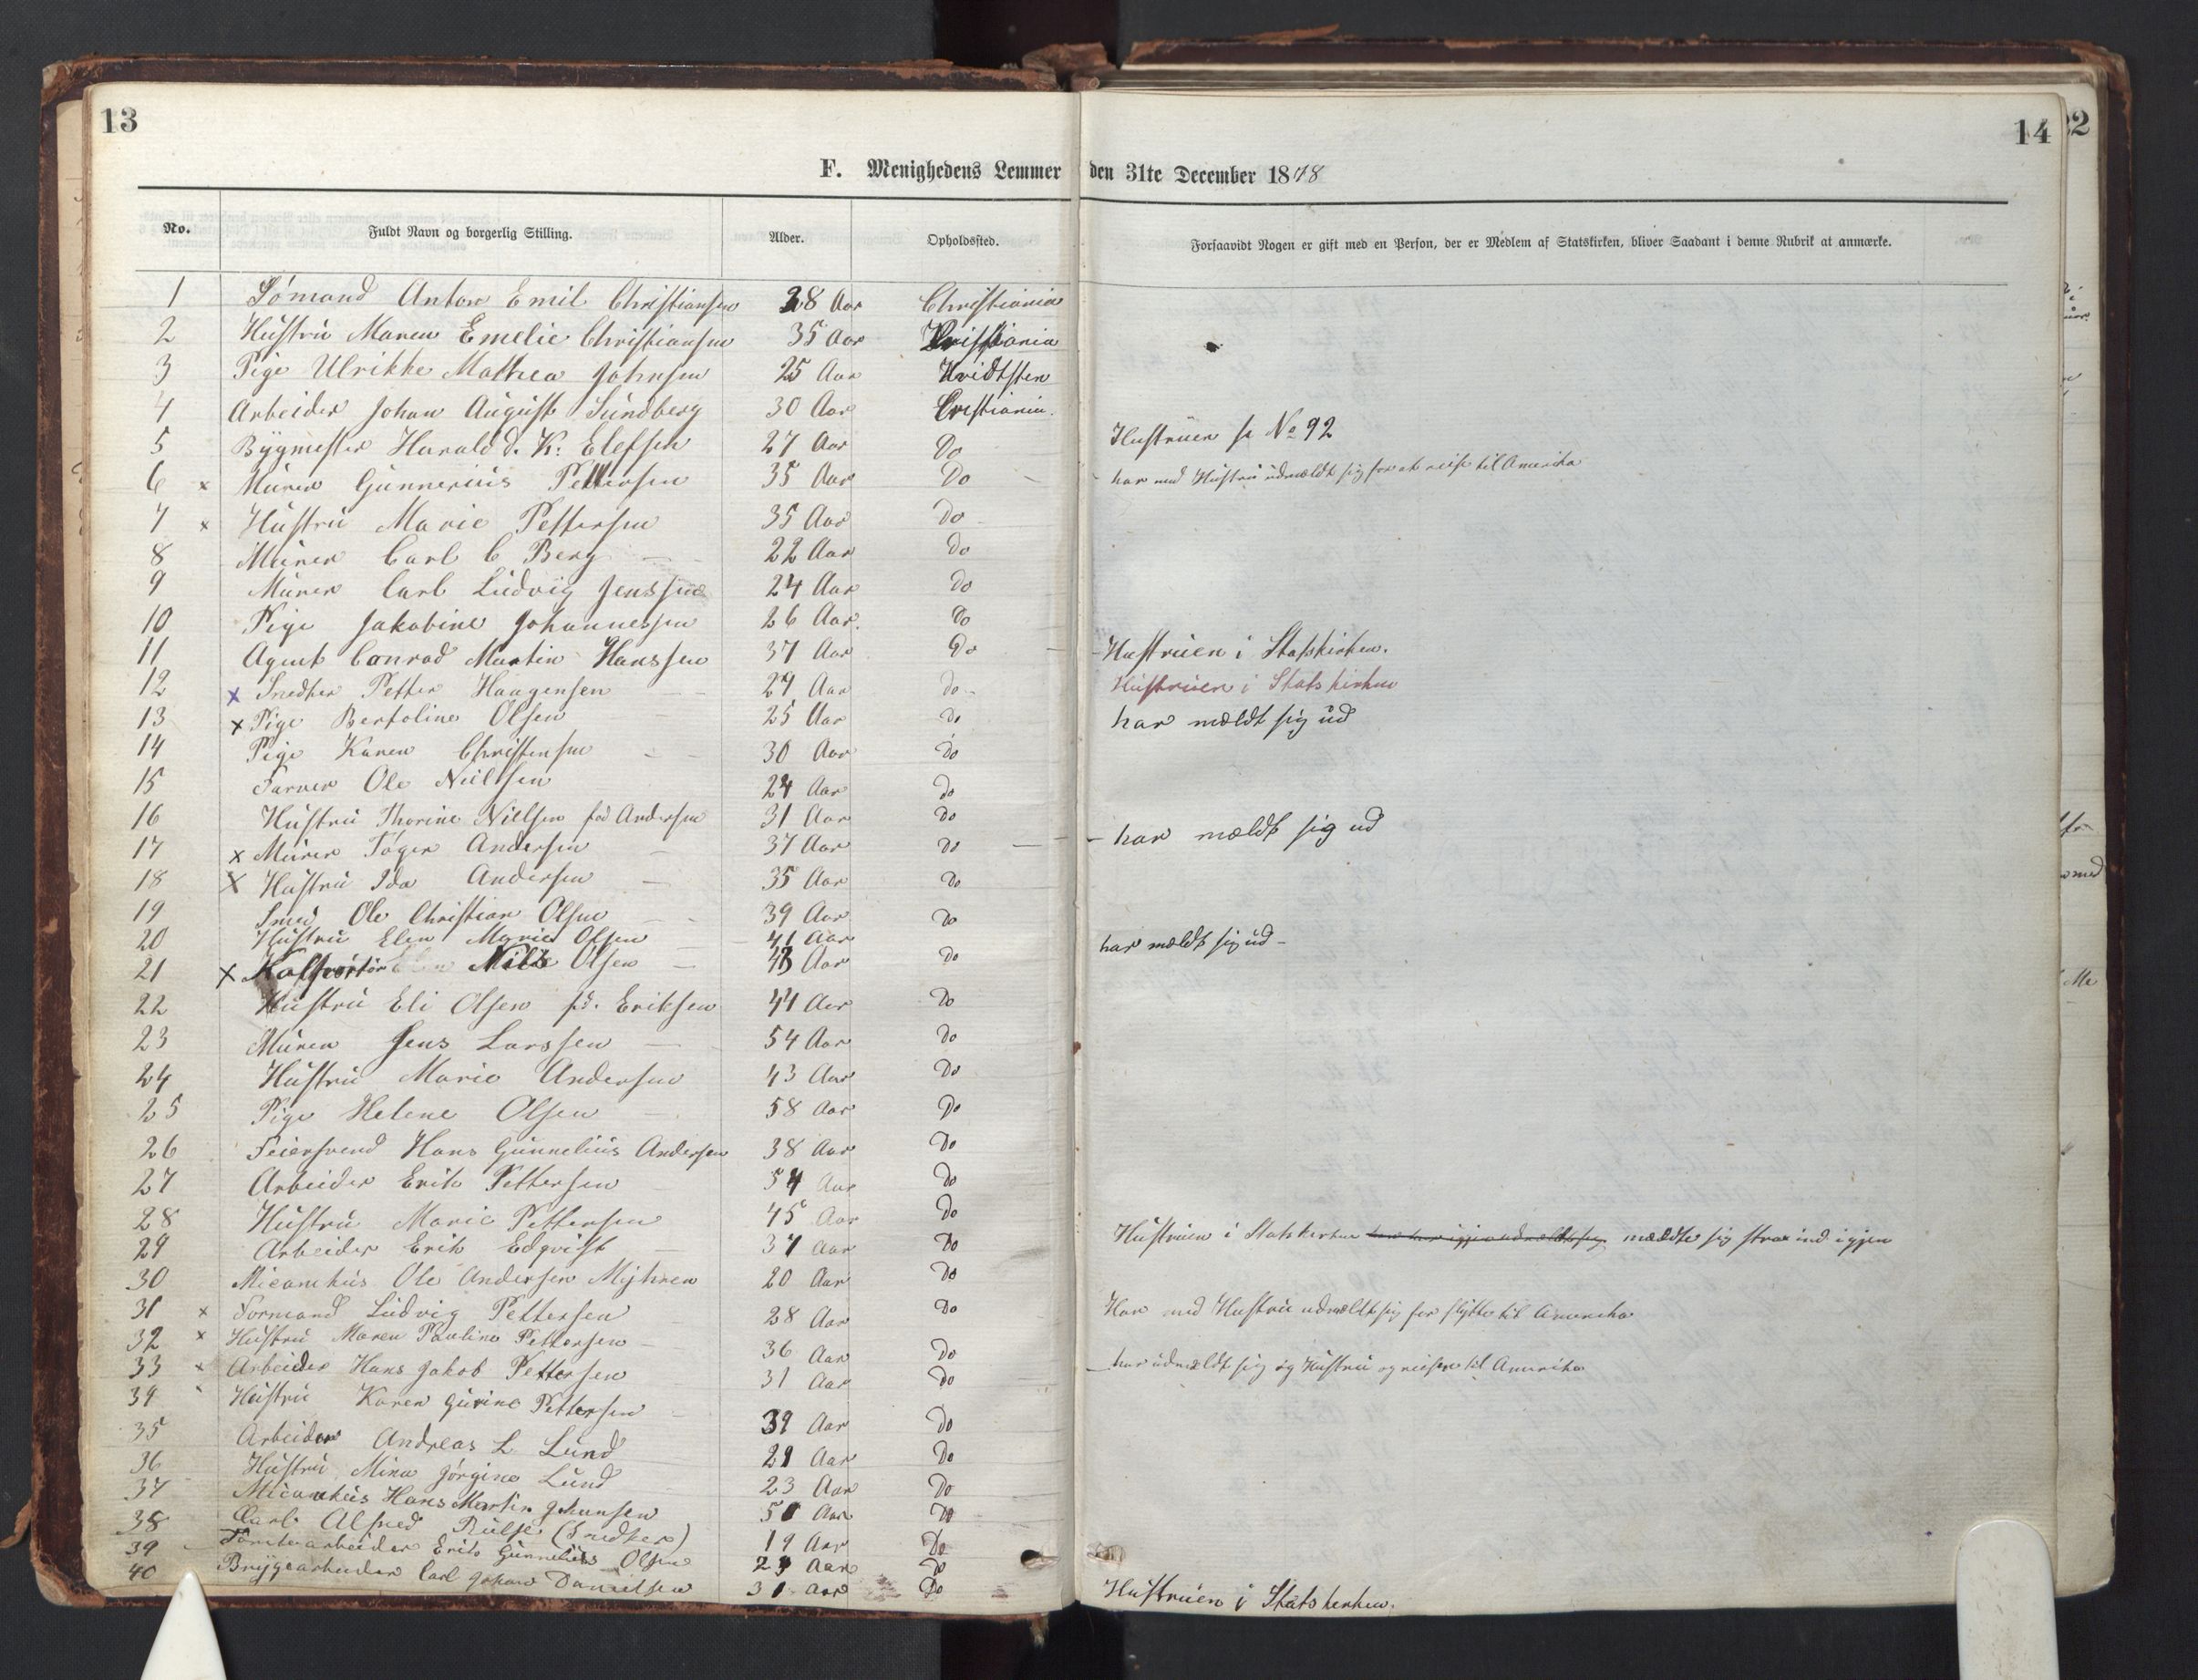 13
14
F. Menighedens Lemmer den 31te December 1878
No. Fuldt Navn og borgerlig Stilling. Alder. Opholdssted. Forsaavidt Nogen er gift med en Person, der er Medlem af Statskirken, bliver Saadant i denne Rubrik at anmærke.
1 Sømand Anton Emil Christiansen 28 Aar Christiania
2 Hustru Maren Emelie Christiansen 35 Aar Kristiania
3 Pige Ulrikke Mathea Johnsen 25 Aar Hvidtsten
4 Arbeider Johan August Sundberg 30 Aar Cristiania.
5 Bygmester Harald d. K. Elefsen 27 Aar Do Hustruen se No 92
6 x Murer Gunnerius Pettersen 35 Aar Do - har med Hustru udmældt sig for at reise til Amerika
7 x Hustru Marie Pettersen 35 Aar do
8 Murer Carl C Berg 22 Aar do
9 Murer Carl Ludvig Jenssen 24 Aar do
10 Pige Jakobine Johannessen 26 Aar. do
11 Agent Conrad Martin Hanssen 37 Aar do - Hustruen i Statskirken.
12 x Snedker Petter Haagensen 29 Aar do Hustruen i Statskirken
13 x Pige Bertoline Olsen 25 Aar do har mældt sig ud
14 Pige Karen Christensen 30 Aar do
15 Farver Ole Nielsen 24 Aar do
16 Hustru Thorine Nielsen fød Andersen 31 Aar do
17 x Murer Tøger Andersen 37 Aar do - har mældt sig ud
18 x Hustru Ida Andersen 35 Aar do
19 Smed Ole Christian Olsen 39 Aar do
20 Hustru Elen Marie Olsen 41 Aar
21 x Kolportør Nils Olsen 43 Aar do har mældt sig ud -
22 Hustru Eli Olsen fd. Eriksen 44 Aar do
23 Murer Jens Larssen 54 Aar do
24 Hustru Marie Andersen 43 Aar do
25 Pige Helene Olsen 58 Aar do
26 Feiersvend Hans Gunnelius Andersen 38 Aar do
27 Arbeider Erik Pettersen 54 Aar do
28 Hustru Marie Pettersen 45 Aar do
29 Arbeider Erik Edqvist 37 Aar do Hustruen i Statskirken mældte sig strax ind igjen
30 Micanikus Ole Andersen Myhren 20 Aar do
31 x Formand Ludvig Pettersen 28 Aar do Har med Hustru udmældt sig for flytte til Amerika
32 x Hustru Maren Pauline Pettersen 36 Aar do
33 x Arbeider Hans Jakob Pettersen 31 Aar do - har udmældt sig og Hustru og reiser til Amerika
34 Hustru Karen Gurine Pettersen 39 Aar do
35 Arbeider Andreas L. Lund 29 Aar do
36 Hustru Mina Jørgine Lund 23 Aar do
37 Micanikus Hans Martin Johansen 50 Aar do
38 Carl Alfred (Snedker) 19 Aar do
39 Erik Gunnelius Olsen 23 Aar do
40 Bryggearbeider Carl Johan Danielsen 31 Aar do Hustruen i Statskirken.